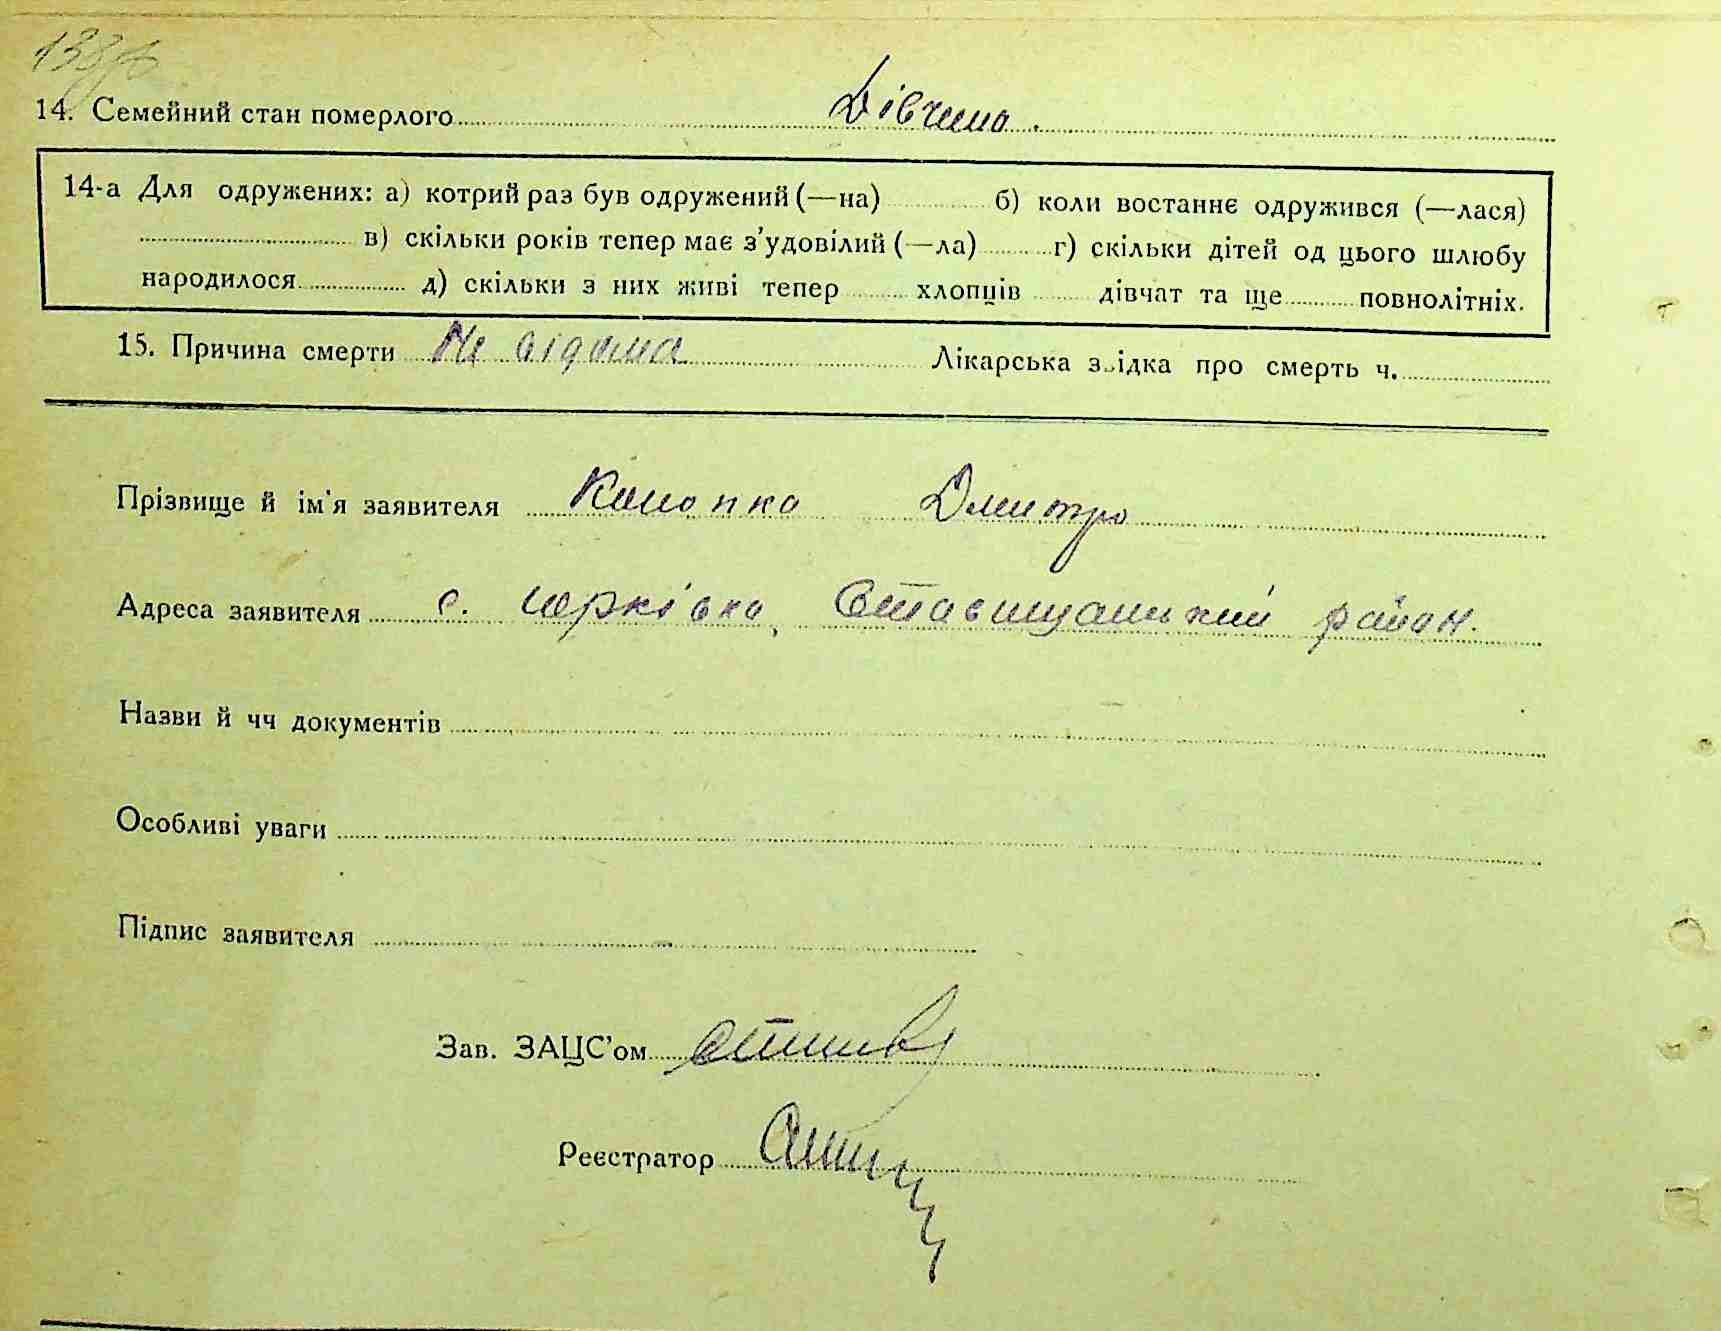 138
14. Семейний стан померлого Дівчина.
14-а Для одружених: а) котрий раз був одружений (—на) б) коли востаннє одружився (—лася)
в) скільки років тепер має з'удовілий (—ла) г) скільки дітей од цього шлюбу
народилося д) скільки з них живі тепер хлопців дівчат та ще повнолітніх.
15. Причина смерти Не відома Лікарська звідка про смерть ч.
Прізвище й ім'я заявителя Конопко Дмитро
Адреса заявителя с. Юрківка, Ставищанський район.
Назви й чч документів
Особливі уваги
Підпис заявителя
Зав. ЗАЦС'ом
Реєстратор